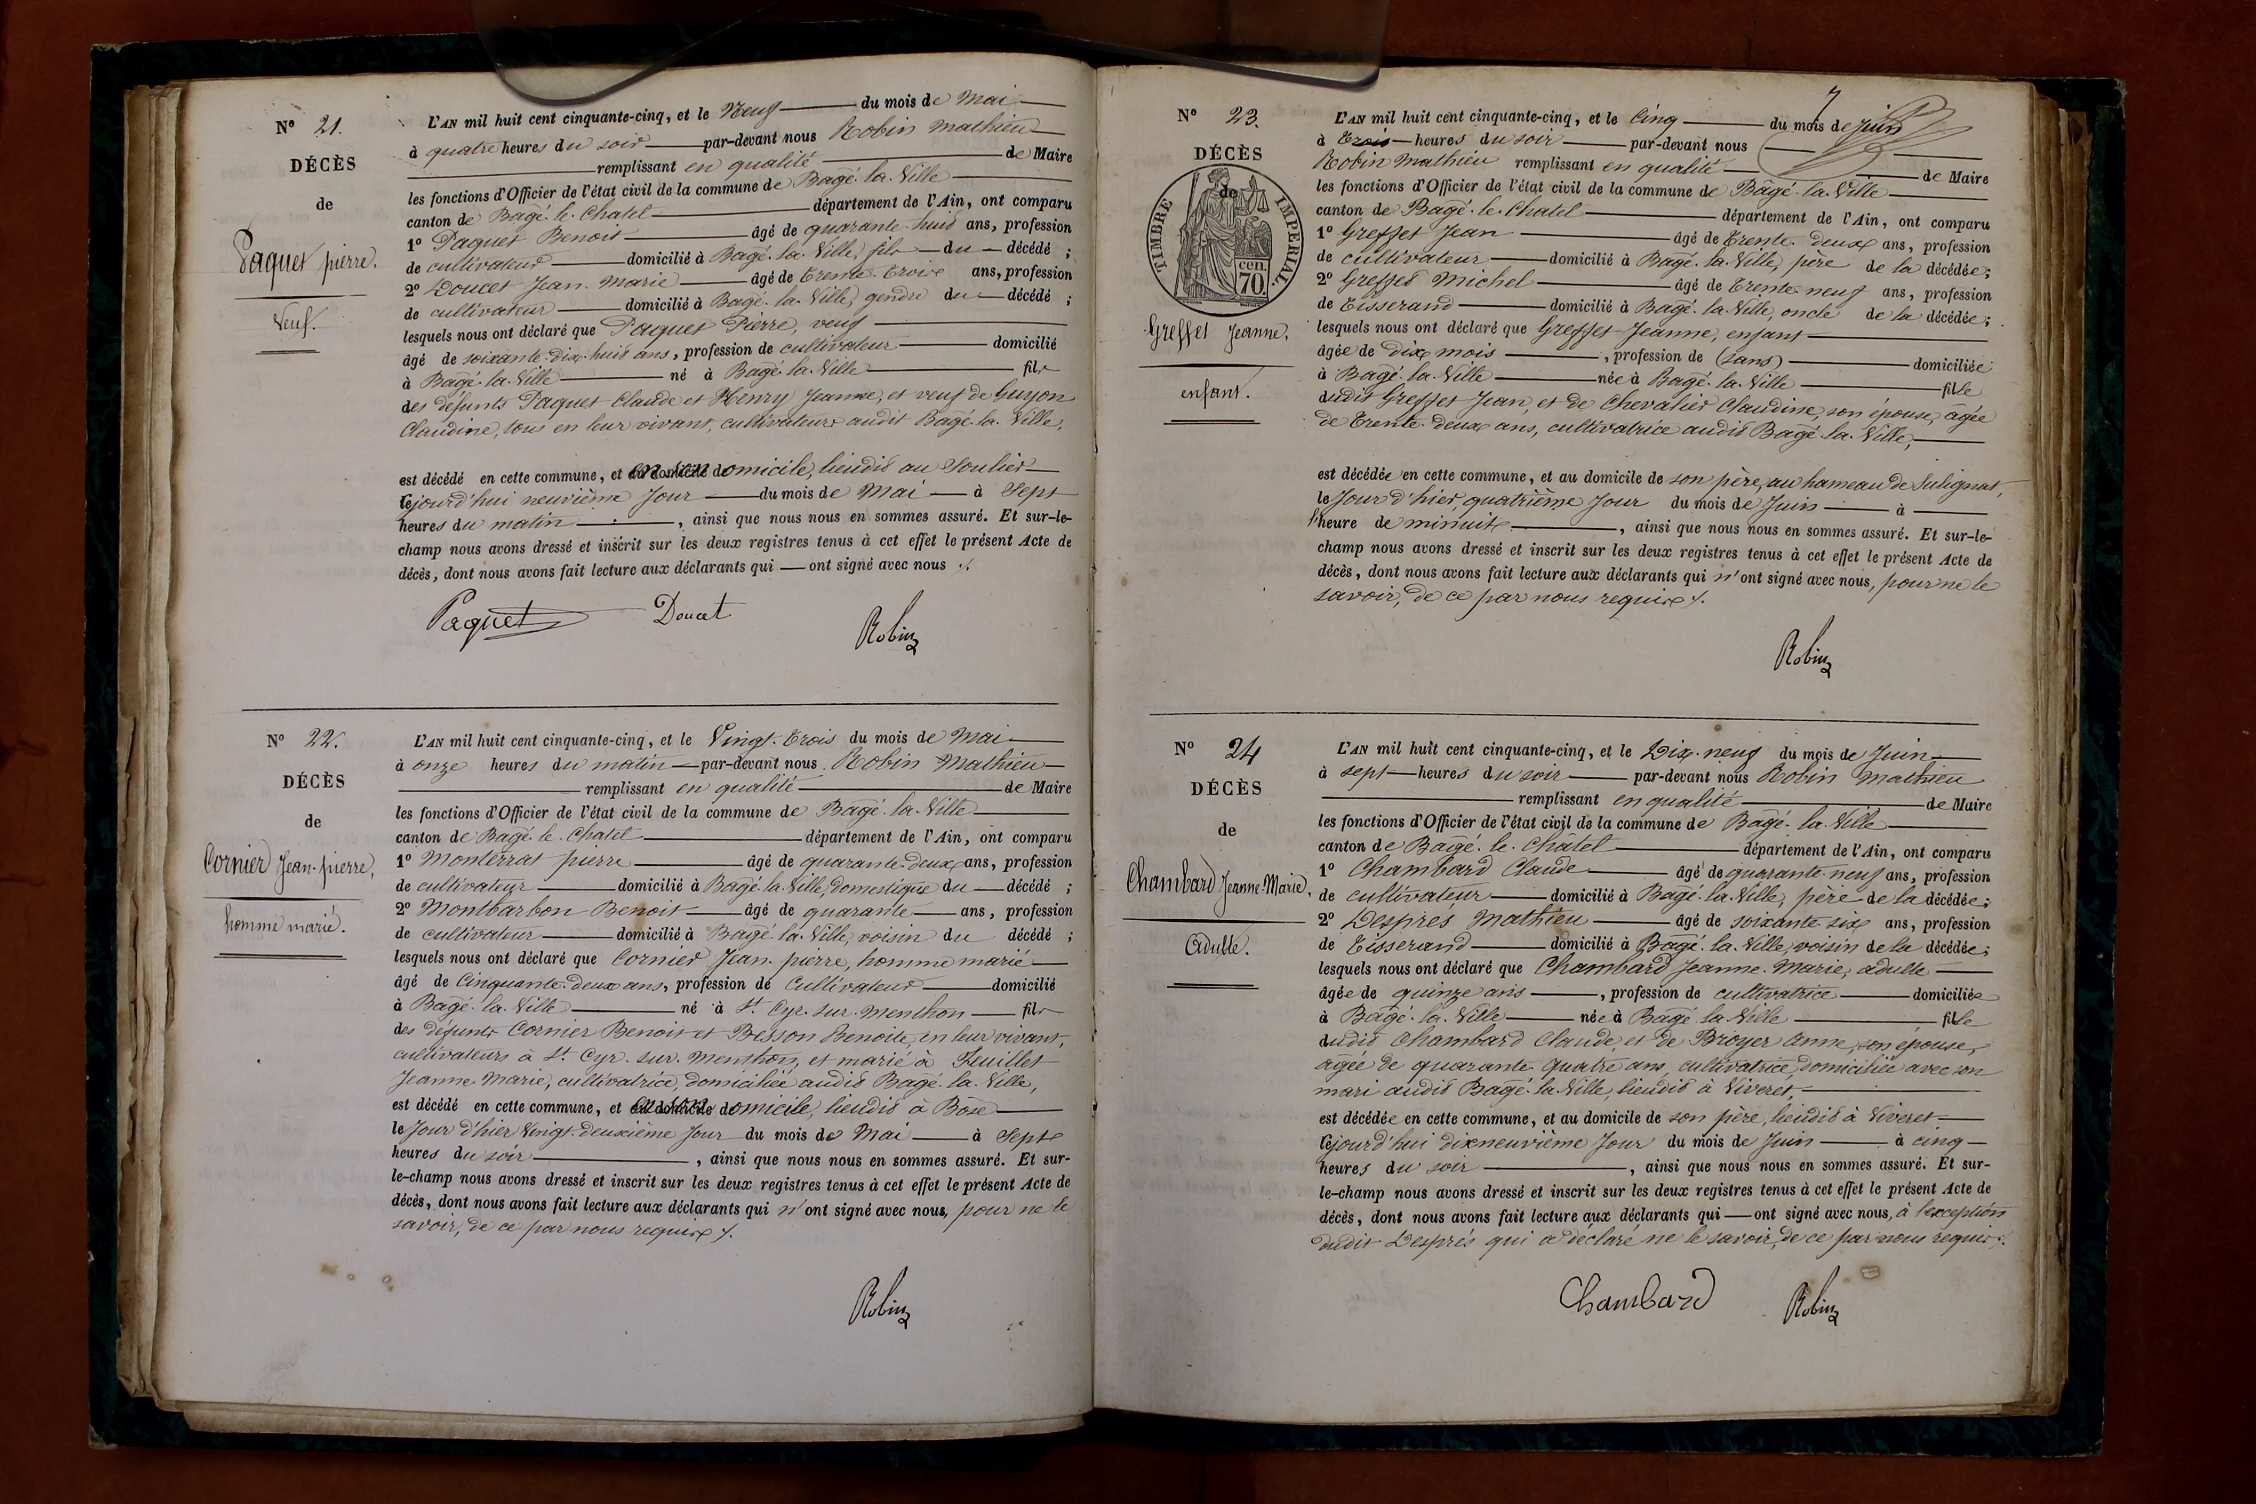 Nº 21.
DÉCÈS
de
Paquet pierre.
Veuf.
L'AN mil huit cent cinquante-cinq, et le Neuf du mois de Mai
à quatre heures du soir par-devant nous Robin Mathieu
remplissant en qualité de Maire
les fonctions d'Officier de l'état civil de la commune de Bagé-la-Ville
canton de Bagé-le-Chatel département de l'Ain, ont comparu
1º Paquet Benoit âgé de quarante-huit ans, profession
de cultivateur domicilié à Bagé-la-Ville, fils du décédé ;
2º Doucet Jean-Marie âgé de trente-trois ans, profession
de cultivateur domicilié à Bagé-la-Ville, gendre du décédé ;
lesquels nous ont déclaré que Paquet Pierre, veuf
âgé de soixante-dix-huit ans, profession de cultivateur domicilié
à Bagé-la-Ville né à Bagé-la-Ville fils
des défunts Paquet Claude et Henry Jeanne, et veuf de Guyon
Claudine, tous en leur vivant, cultivateurs audit Bagé-la-Ville,
est décédé en cette commune, et en son domicile, lieudit au Soulier
cejourd'hui neuvième jour du mois de Mai à sept
heures du matin, ainsi que nous nous en sommes assuré. Et sur-le-
champ nous avons dressé et inscrit sur les deux registres tenus à cet effet le présent Acte de
décès, dont nous avons fait lecture aux déclarants qui ont signé avec nous ./.
Paquet Doucet
Robin
Nº 22.
DÉCÈS
de
Cornier Jean-pierre,
homme marié.
L'AN mil huit cent cinquante-cinq, et le Vingt-trois du mois de Mai
à onze heures du matin par-devant nous Robin Mathieu
remplissant en qualité de Maire
les fonctions d'Officier de l'état civil de la commune de Bagé-la-Ville
canton de Bagé-le-Chatel département de l'Ain, ont comparu
1º Monterrat pierre âgé de quarante-deux ans, profession
de cultivateur domicilié à Bagé-la-Ville, domestique du décédé ;
2º Montbarbon Benoit âgé de quarante ans, profession
de cultivateur domicilié à Bagé-la-Ville, voisin du décédé ;
lesquels nous ont déclaré que Cornier Jean-pierre, homme marié
âgé de Cinquante-deux ans, profession de Cultivateur domicilié
à Bagé-la-Ville né à St Cyr-sur-Menthon fils
des défunts Cornier Benoit et Besson Benoite, en leur vivant,
cultivateurs à St Cyr-sur-Menthon, et marié à Feuillet
Jeanne-Marie, cultivatrice, domiciliée audit Bagé-la-Ville,
est décédé en cette commune, et en son domicile, lieudit à Bose
le Jour d'hier Vingt-deuxième jour du mois de Mai à Sept
heures du soir, ainsi que nous nous en sommes assuré. Et sur-
le-champ nous avons dressé et inscrit sur les deux registres tenus à cet effet le présent Acte de
décès, dont nous avons fait lecture aux déclarants qui n'ont signé avec nous, pour ne le
savoir, de ce par nous requis ./.
Robin
7
Nº 23.
DÉCÈS
de
TIMBRE IMPERIAL.
cen.
70.
Greffet Jeanne,
enfant.
L'AN mil huit cent cinquante-cinq, et le Cinq du mois de juin
à trois heures du soir par-devant nous
Robin Mathieu remplissant en qualité de Maire
les fonctions d'Officier de l'état civil de la commune de Bâgé-la-Ville
canton de Bagé-le-Chatel département de l'Ain, ont comparu
1º Greffet Jean âgé de trente-deux ans, profession
de cultivateur domicilié à Bagé-la-Ville, père de la décédée ;
2º Greffet Michel âgé de trente-neuf ans, profession
de tisserand domicilié à Bagé-la-Ville, oncle de la décédée ;
lesquels nous ont déclaré que Greffet Jeanne, enfant
âgée de dix mois, profession de (sans) domiciliée
à Bagé-la-Ville née à Bagé-la-Ville fille
dudit Greffet Jean, et de Chevalier Claudine, son épouse, âgée
de trente-deux ans, cultivatrice audit Bagé-la-Ville,
est décédée en cette commune, et au domicile de son père, au hameau de Sulignat,
le Jour d'hier, quatrième Jour du mois de Juin à
l'heure de minuit, ainsi que nous nous en sommes assuré. Et sur-le-
champ nous avons dressé et inscrit sur les deux registres tenus à cet effet le présent Acte de
décès, dont nous avons fait lecture aux déclarants qui n'ont signé avec nous, pour ne le
savoir, de ce par nous requis ./.
Robin
Nº 24
DÉCÈS
de
Chambard Jeanne-Marie,
adulte.
L'AN mil huit cent cinquante-cinq, et le Dix-neuf du mois de Juin
à sept heures du soir par-devant nous Robin Mathieu
remplissant en qualité de Maire
les fonctions d'Officier de l'état civil de la commune de Bagé-la-Ville
canton de Bagé-le-Châtel département de l'Ain, ont comparu
1º Chambard Claude âgé de quarante-neuf ans, profession
de cultivateur domicilié à Bagé-la-Ville, père de la décédée ;
2º Desprès Mathieu âgé de soixante-six ans, profession
de tisserand domicilié à Bagé-la-Ville, voisin de la décédée ;
lesquels nous ont déclaré que Chambard Jeanne-Marie, adulte
âgée de quinze ans, profession de cultivatrice domiciliée
à Bagé-la-Ville née à Bagé-la-Ville fille
dudit Chambard Claude, et de Broyer Anne, son épouse,
âgée de quarante-quatre ans, cultivatrice, domiciliée avec son
mari audit Bagé-la-Ville, lieudit à Viveret,
est décédée en cette commune, et au domicile de son père, lieudit à Viveret
cejourd'hui dixneuvième Jour du mois de Juin à cinq
heures du soir, ainsi que nous nous en sommes assuré. Et sur-
le-champ nous avons dressé et inscrit sur les deux registres tenus à cet effet le présent Acte de
décès, dont nous avons fait lecture aux déclarants qui ont signé avec nous, à l'exception
dudit Desprès qui a déclaré ne le savoir, de ce par nous requis ./.
Chambard Robin